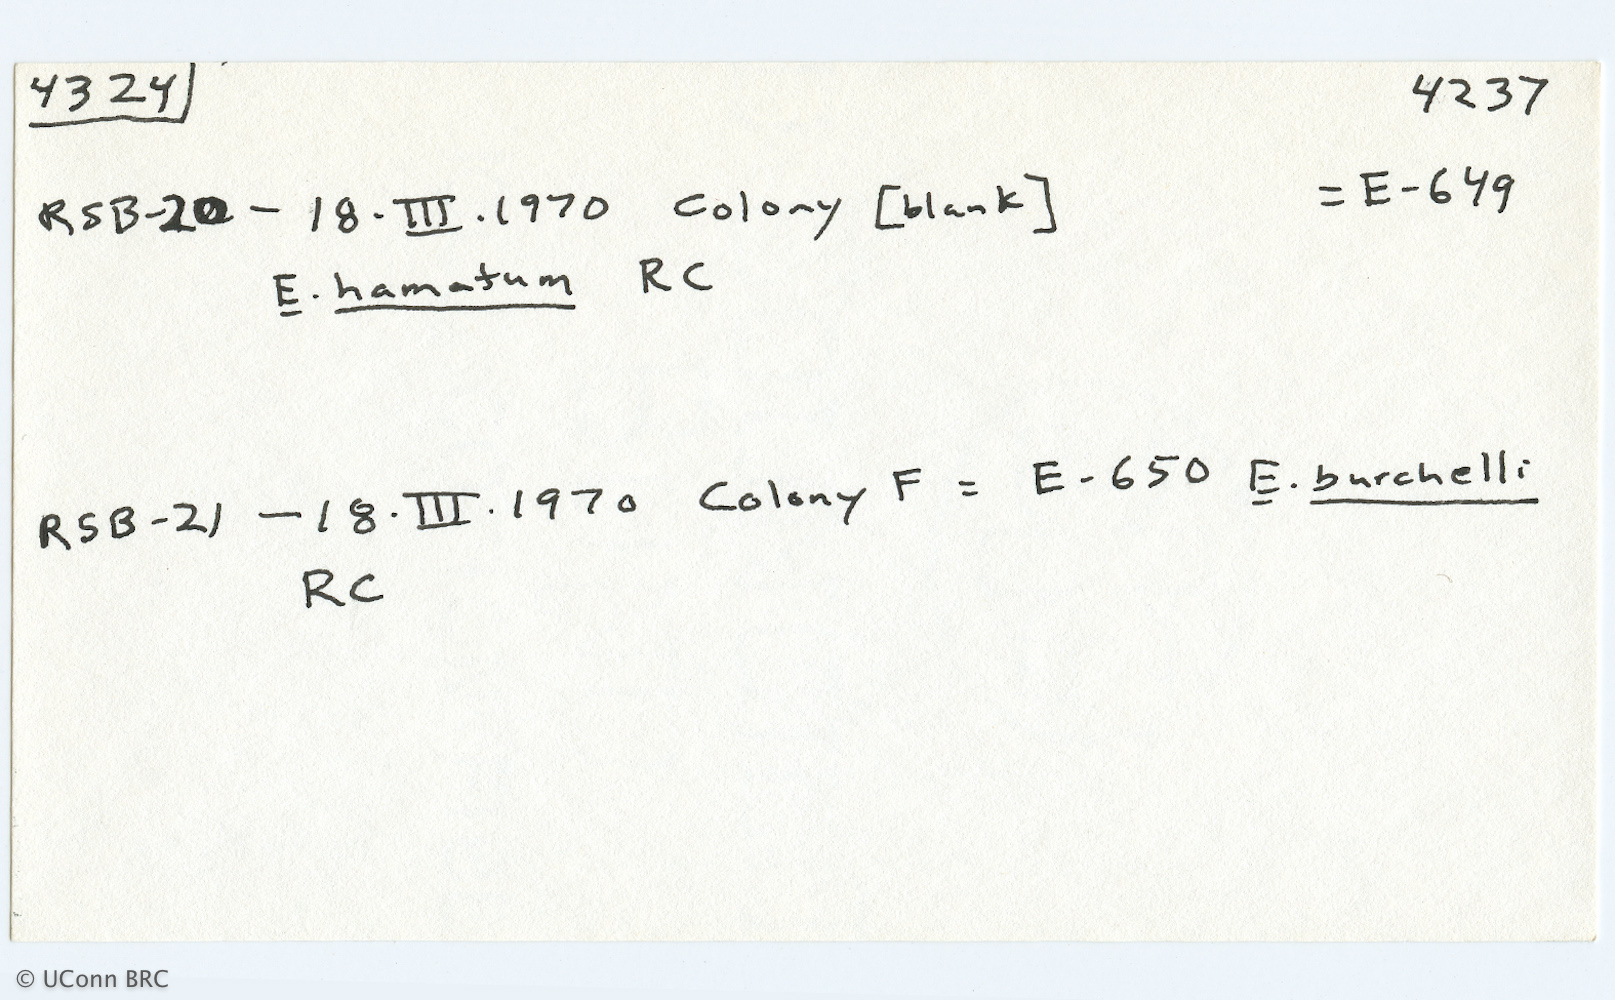 4324 4237
RSB-20 - 18.III.1970 Colony [blank] = E-649
E. hamatum RC
RSB-21 - 18.III.1970 Colony F = E-650 E. burchelli
RC
© UConn BRC